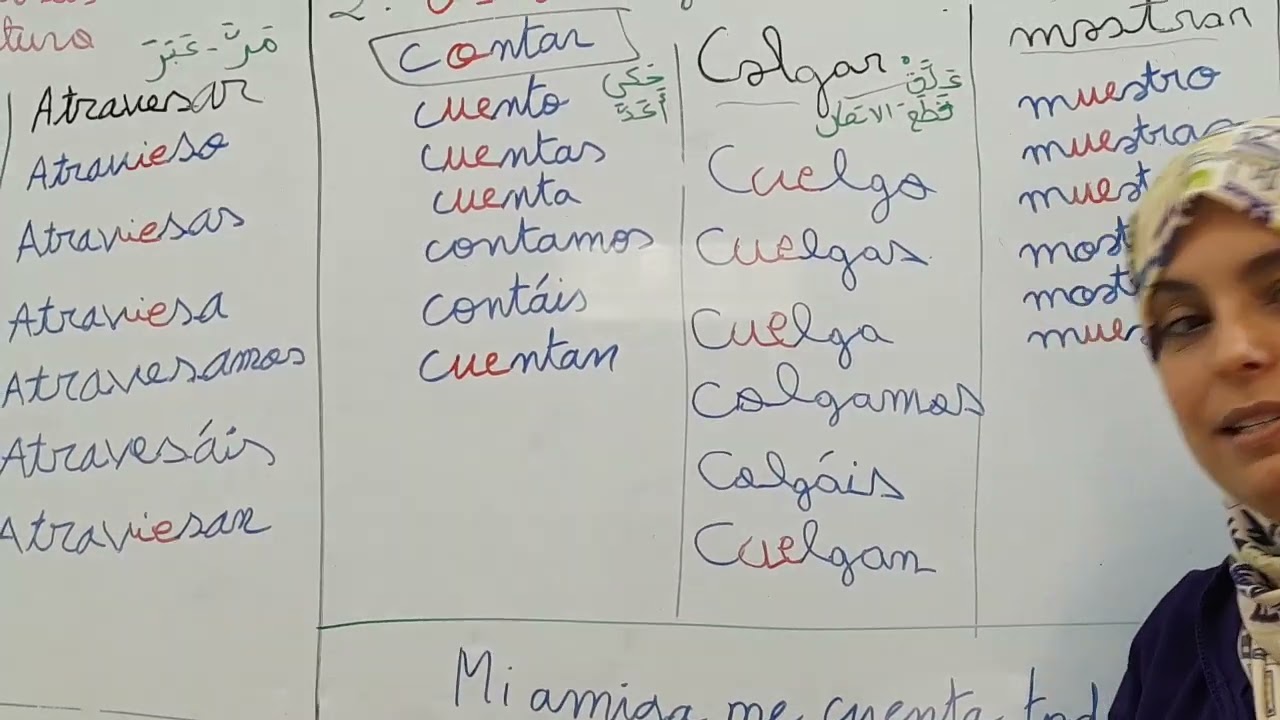 مَرَّ - عَبَرَ
Atravesar
Atravieso
Atraviesas
Atraviesa
Atravesamos
Atravesáis
Atraviesan
contar
حَكَى
cuento
cuentas
cuenta
contamos
contáis
cuentan
Colgar
عَلَّقَ
قطع الاتصال
Cuelgo
Cuelgas
Cuelga
Colgamos
Colgáis
Cuelgan
mostrar
muestro
muestras
Mi amiga me cuenta